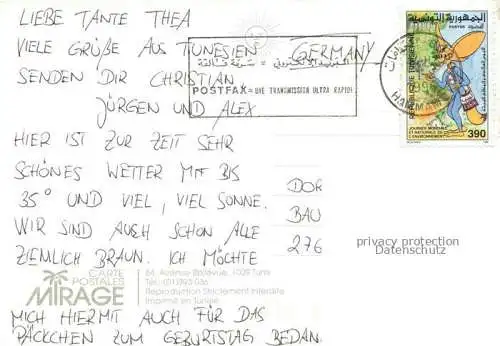 LIEBE TANTE THEA
VIELE GRÜßE AUS TUNESIEN, GERMANY
SENDEN DIR CHRISTIAN
JÜRGEN UND ALEX
HIER IST ZUR ZEIT SEHR
SCHÖNES WETTER MIT BIS
35° UND VIEL, VIEL SONNE.
WIR SIND AUCH SCHON ALLE
ZIEMLICH BRAUN. ICH MÖCHTE
MICH HIERMIT AUCH FÜR DAS
PÄCKCHEN ZUM GEBURTSTAG BEDAN
DOR
BAU
276
POSTFAX = UNE TRANSMISSION ULTRA RAPIDE
الجمهورية التونسية
REPUBLIQUE TUNISIENNE
JOURNEE MONDIALE
ET NATIONALE DE
L'ENVIRONNEMENT
390
HAMMAM
CARTE
POSTALES
MIRAGE
64, Avenue Bellevue, 1009 Tunis
Reproduction Strictement Interdite
Imprimé en Tunisie
privacy protection
Datenschutz